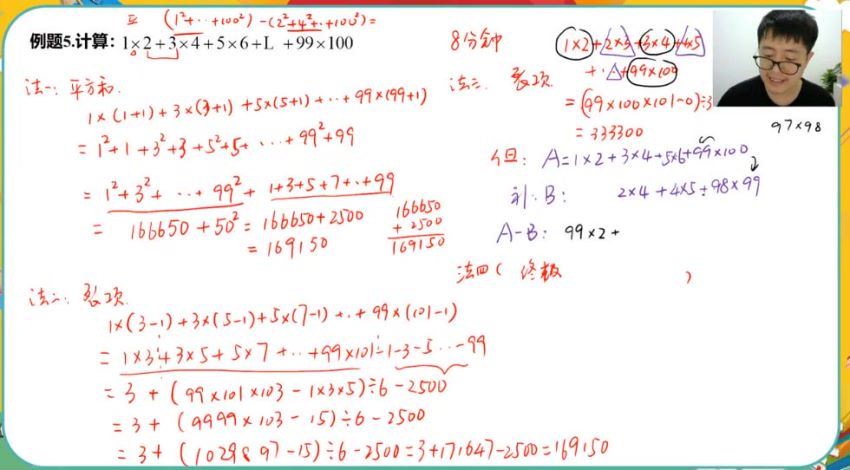 (1²+‥+100²)-(2²+4²+‥+100²)=
例题5.计算：1×2+3×4+5×6+L +99×100
法一：平方和.
1×(1+1)+3×(3+1)+5×(5+1)+‥+99×(99+1)
=1²+1+3²+3+5²+5+‥+99²+99
=1²+3²+‥+99²+1+3+5+7+‥+99
= 166650+50²=166650+2500
=169150
166650
+2500
169150
法二：裂项.
1×(3-1)+3×(5-1)+5×(7-1)+‥+99×(101-1)
=1×3+3×5+5×7+‥+99×101-1-3-5‥-99
=3+(99×101×103-1×3×5)÷6-2500
=3+(9999×103-15)÷6-2500
=3+(1029897-15)÷6-2500=3+171647-2500=169150
8分钟
1×2+2×3+3×4+4×5
+‥+99×100
法三：裂项.
=(99×100×101-0)÷3
=333300
97×98
但：A=1×2+3×4+5×6+99×100
补.B： 2×4+4×5+98×99
A-B： 99×2+
法四( )